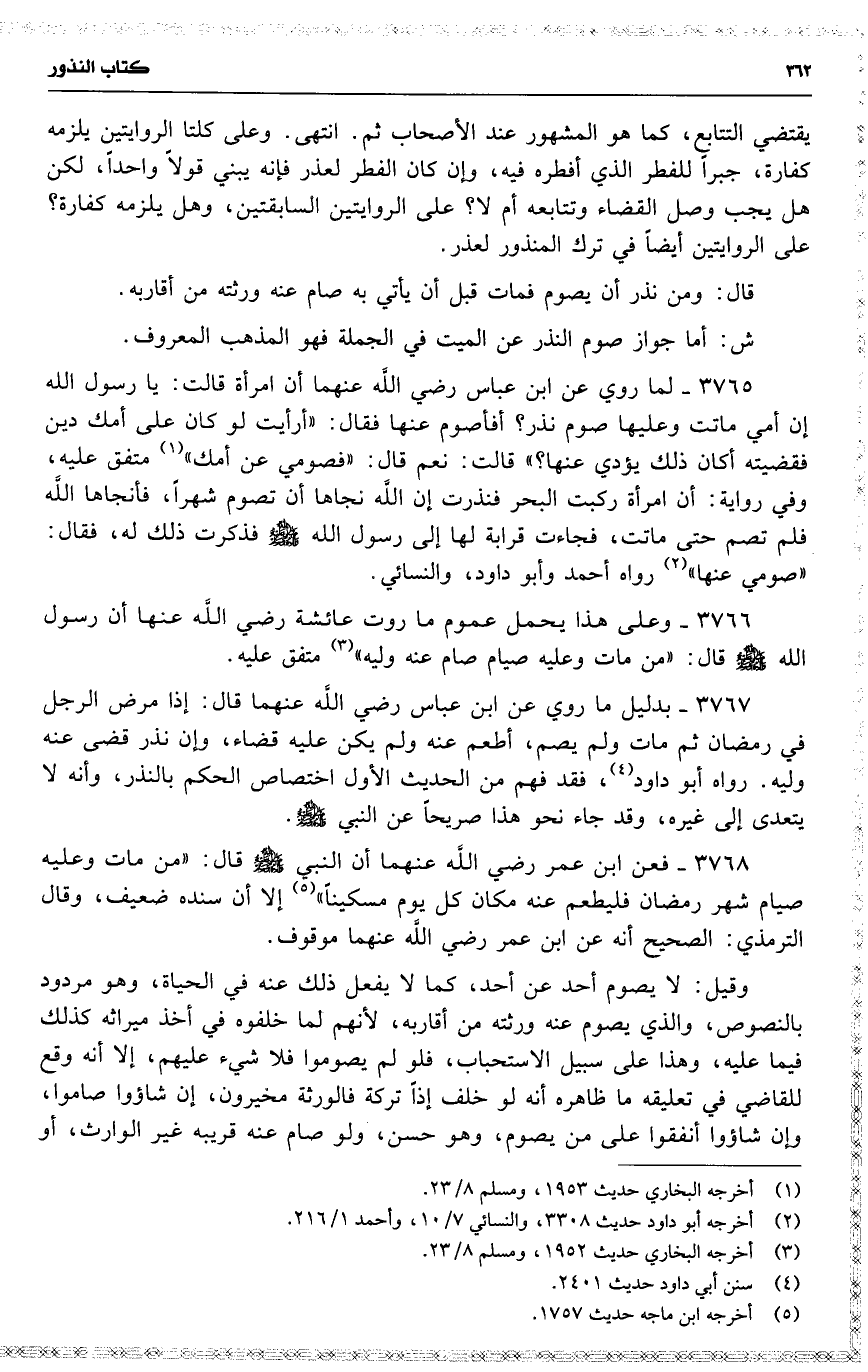 ٣٦٢ كتاب النذور
يقتضي التتابع، كما هو المشهور عند الأصحاب ثم. انتهى. وعلى كلتا الروايتين يلزمه
كفارة، جبراً للفطر الذي أفطره فيه، وإن كان الفطر لعذر فإنه يبني قولاً واحداً، لكن
هل يجب وصل القضاء وتتابعه أم لا؟ على الروايتين السابقتين، وهل يلزمه كفارة؟
على الروايتين أيضاً في ترك المنذور لعذر.
قال: ومن نذر أن يصوم فمات قبل أن يأتي به صام عنه ورثته من أقاربه.
ش: أما جواز صوم النذر عن الميت في الجملة فهو المذهب المعروف.
٣٧٦٥ ـ لما روي عن ابن عباس رضي اللَّه عنهما أن امرأة قالت: يا رسول الله
إن أمي ماتت وعليها صوم نذر؟ أفأصوم عنها فقال: «أرأيت لو كان على أمك دين
فقضيته أكان ذلك يؤدي عنها؟» قالت: نعم قال: «فصومي عن أمك»(١) متفق عليه،
وفي رواية: أن امرأة ركبت البحر فنذرت إن اللَّه نجاها أن تصوم شهراً، فأنجاها اللَّه
فلم تصم حتى ماتت، فجاءت قرابة لها إلى رسول الله ﷺ فذكرت ذلك له، فقال:
«صومي عنها»(٢) رواه أحمد وأبو داود، والنسائي.
٣٧٦٦ ـ وعلى هذا يحمل عموم ما روت عائشة رضي اللَّه عنها أن رسول
الله ﷺ قال: «من مات وعليه صيام صام عنه وليه»(٣) متفق عليه.
٣٧٦٧ ـ بدليل ما روي عن ابن عباس رضي اللَّه عنهما قال: إذا مرض الرجل
في رمضان ثم مات ولم يصم، أطعم عنه ولم يكن عليه قضاء، وإن نذر قضى عنه
وليه. رواه أبو داود(٤)، فقد فهم من الحديث الأول اختصاص الحكم بالنذر، وأنه لا
يتعدى إلى غيره، وقد جاء نحو هذا صريحاً عن النبي ﷺ.
٣٧٦٨ ـ فعن ابن عمر رضي اللَّه عنهما أن النبي ﷺ قال: «من مات وعليه
صيام شهر رمضان فليطعم عنه مكان كل يوم مسكيناً»(٥) إلا أن سنده ضعيف، وقال
الترمذي: الصحيح أنه عن ابن عمر رضي اللَّه عنهما موقوف.
وقيل: لا يصوم أحد عن أحد، كما لا يفعل ذلك عنه في الحياة، وهو مردود
بالنصوص، والذي يصوم عنه ورثته من أقاربه، لأنهم لما خلفوه في أخذ ميراثه كذلك
فيما عليه، وهذا على سبيل الاستحباب، فلو لم يصوموا فلا شيء عليهم، إلا أنه وقع
للقاضي في تعليقه ما ظاهره أنه لو خلف إذاً تركة فالورثة مخيرون، إن شاؤوا صاموا،
وإن شاؤوا أنفقوا على من يصوم، وهو حسن، ولو صام عنه قريبه غير الوارث، أو
(١) أخرجه البخاري حديث ١٩٥٣، ومسلم ٢٣/٨.
(٢) أخرجه أبو داود حديث ٣٣٠٨، والنسائي ١٠/٧، وأحمد ٢١٦/١.
(٣) أخرجه البخاري حديث ١٩٥٢، ومسلم ٢٣/٨.
(٤) سنن أبي داود حديث ٢٤٠١.
(٥) أخرجه ابن ماجه حديث ١٧٥٧.